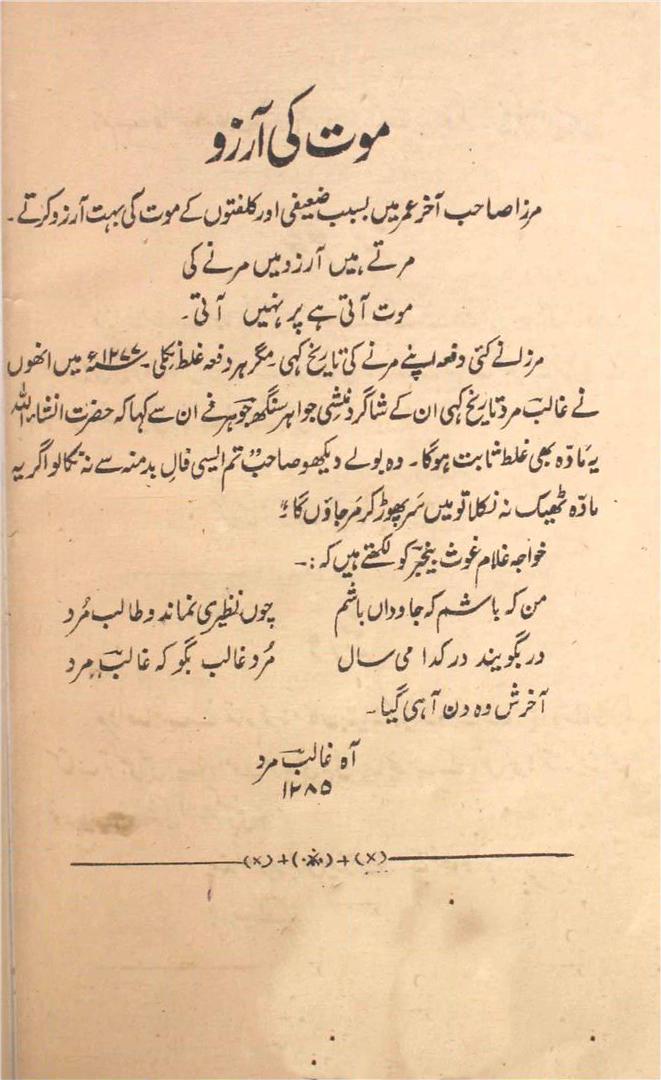 موت کی آرزو
مرزا صاحب آخر عمر میں بسبب ضعیفی اور کلفتوں کے موت کی بہت آرزو کرتے۔
مرتے ہیں آرزو میں مرنے کی
موت آتی ہے پر نہیں آتی۔
مرزا نے کئی دفعہ اپنے مرنے کی تاریخ کہی۔ مگر ہر دفعہ غلط نکلی۔ ۱۲۷۷ء میں انھوں
نے غالب مرد تاریخ کہی ان کے شاگرد منشی جواہر سنگھ جوہر نے ان سے کہا کہ حضرت انشاءاللہ
یہ مادّہ بھی غلط ثابت ہوگا۔ وہ بولے دیکھو صاحب تم ایسی فالِ بد منہ سے نہ نکالو اگر یہ
مادّہ ٹھیک نہ نکلا تو میں سر پھوڑ کر مر جاؤں گا"
خواجہ غلام غوث بیخبر کو لکھتے ہیں کہ :۔
من کہ باشم کہ جاوداں باشم چوں نظیری نماند و طالب مُرد
در بگویند در کدامی سال مُرد غالب بگو کہ غالب مرد
آخرش وہ دن آہی گیا۔
آہ غالب مرد
۱۲۸۵